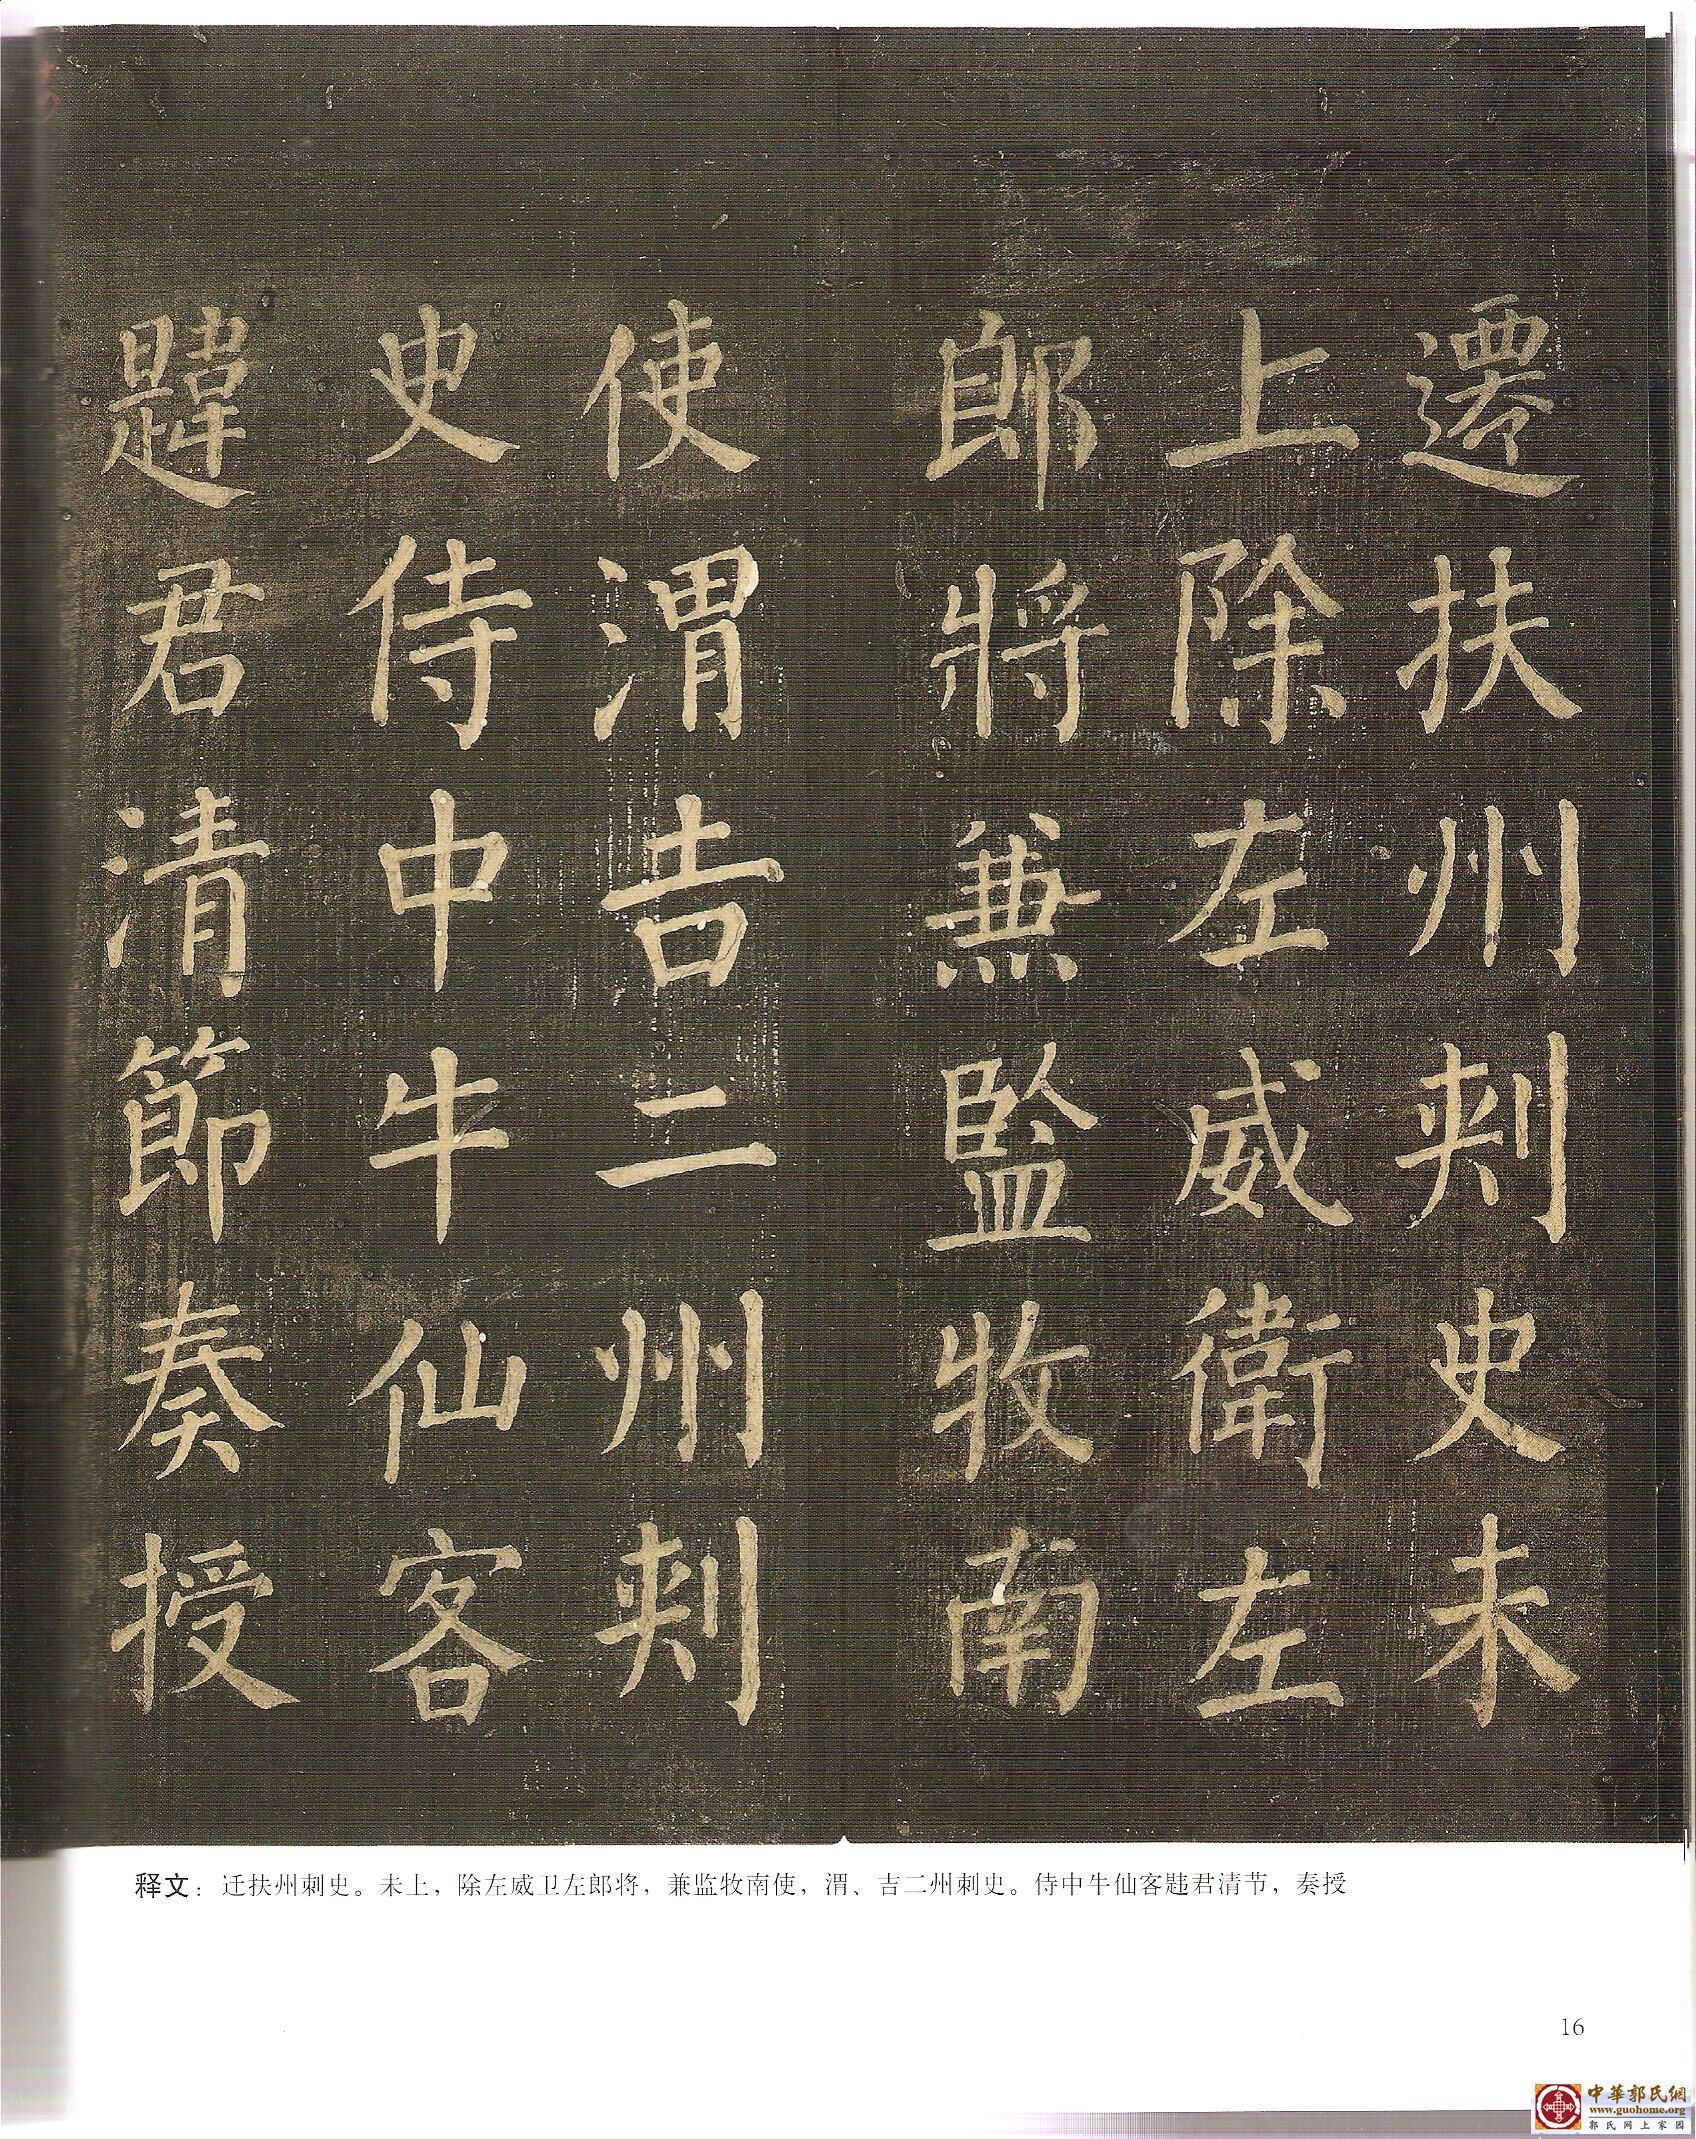 遷扶州刺史未
上除左威衛左
郎將兼監牧南
使渭吉二州刺
史侍中牛仙客
韙君清節奏授
释文：迁扶州刺史。未上，除左威卫左郎将，兼监牧南使，渭、吉二州刺史。侍中牛仙客韪君清节，奏授
16
中華郭氏網
www.guohome.org
郭氏网上家园